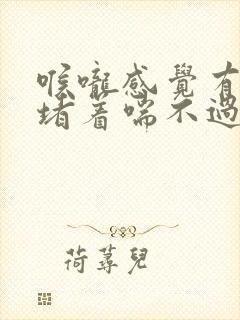 喉嚨感覺有
堵着喘不過
荷蕁兒